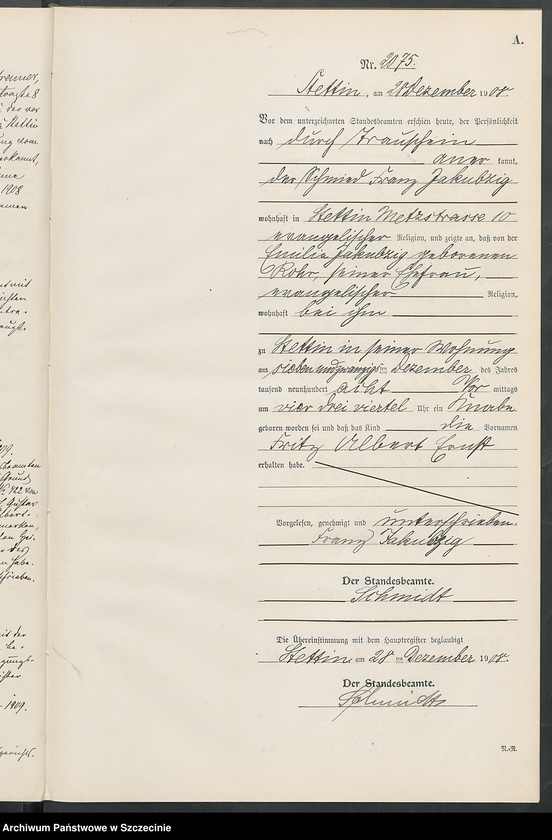 A.
Nr. 2075.
Stettin, am 28 Dezember 1908.
Vor dem unterzeichneten Standesbeamten erschien heute, der Persönlichkeit
nach durch Trauschein
aner kannt,
der Schmied Franz Jakubzig
wohnhaft in Stettin Metzstrasse 10
evangelischer Religion, und zeigte an, daß von der
Emilie Jakubzig geborenen
Rohr, seiner Ehefrau,
evangelischer Religion,
wohnhaft bei ihm
zu Stettin in seiner Wohnung
am sieben und zwanzigsten Dezember des Jahres
tausend neunhundert acht Vor mittags
um vier drei viertel Uhr ein Knabe
geboren worden sei und daß das Kind die Vornamen
Fritz Albert Ernst
erhalten habe.
Vorgelesen, genehmigt und unterschrieben.
Franz Jakubzig
Der Standesbeamte.
Schmidt
Die Übereinstimmung mit dem Hauptregister beglaubigt
Stettin am 28 ten Dezember 1908.
Der Standesbeamte.
Schmidt
N.-R.
Archiwum Państwowe w Szczecinie